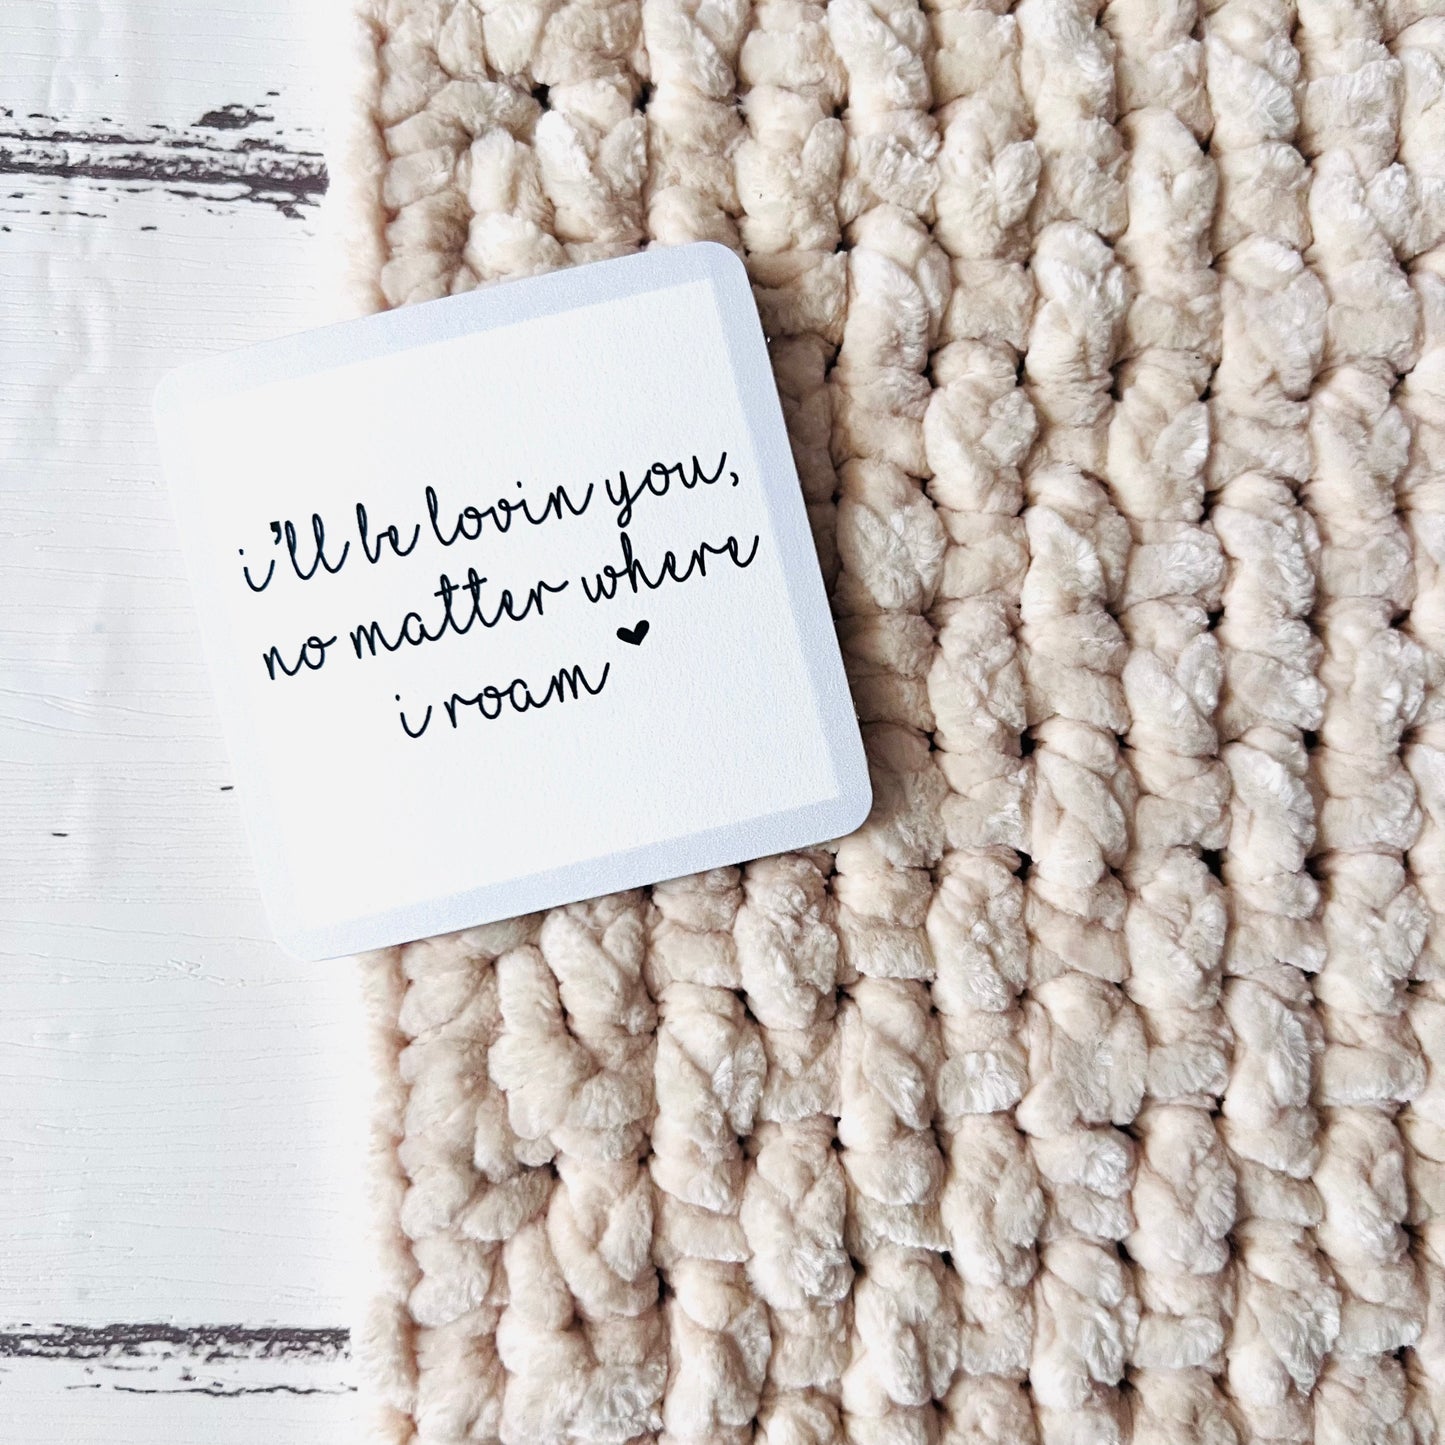 i'll be lovin you,
no matter where
i roam ♥